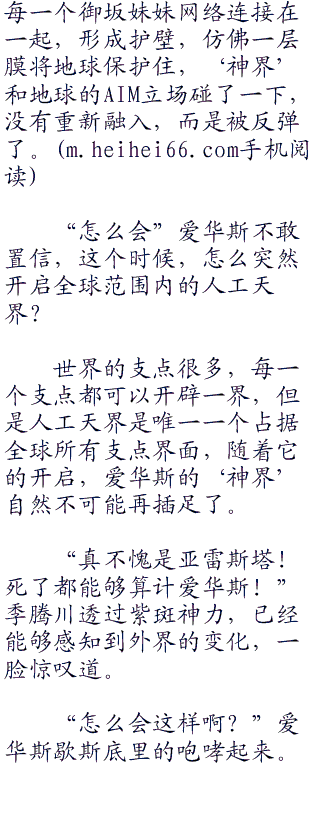 每一个御坂妹妹网络连接在
一起，形成护壁，仿佛一层
膜将地球保护住，‘神界’
和地球的AIM立场碰了一下，
没有重新融入，而是被反弹
了。(m.heihei66.com手机阅
读)
“怎么会”爱华斯不敢
置信，这个时候，怎么突然
开启全球范围内的人工天
界？
世界的支点很多，每一
个支点都可以开辟一界，但
是人工天界是唯一一个占据
全球所有支点界面，随着它
的开启，爱华斯的‘神界’
自然不可能再插足了。
“真不愧是亚雷斯塔！
死了都能够算计爱华斯！”
季腾川透过紫斑神力，已经
能够感知到外界的变化，一
脸惊叹道。
“怎么会这样啊？”爱
华斯歇斯底里的咆哮起来。